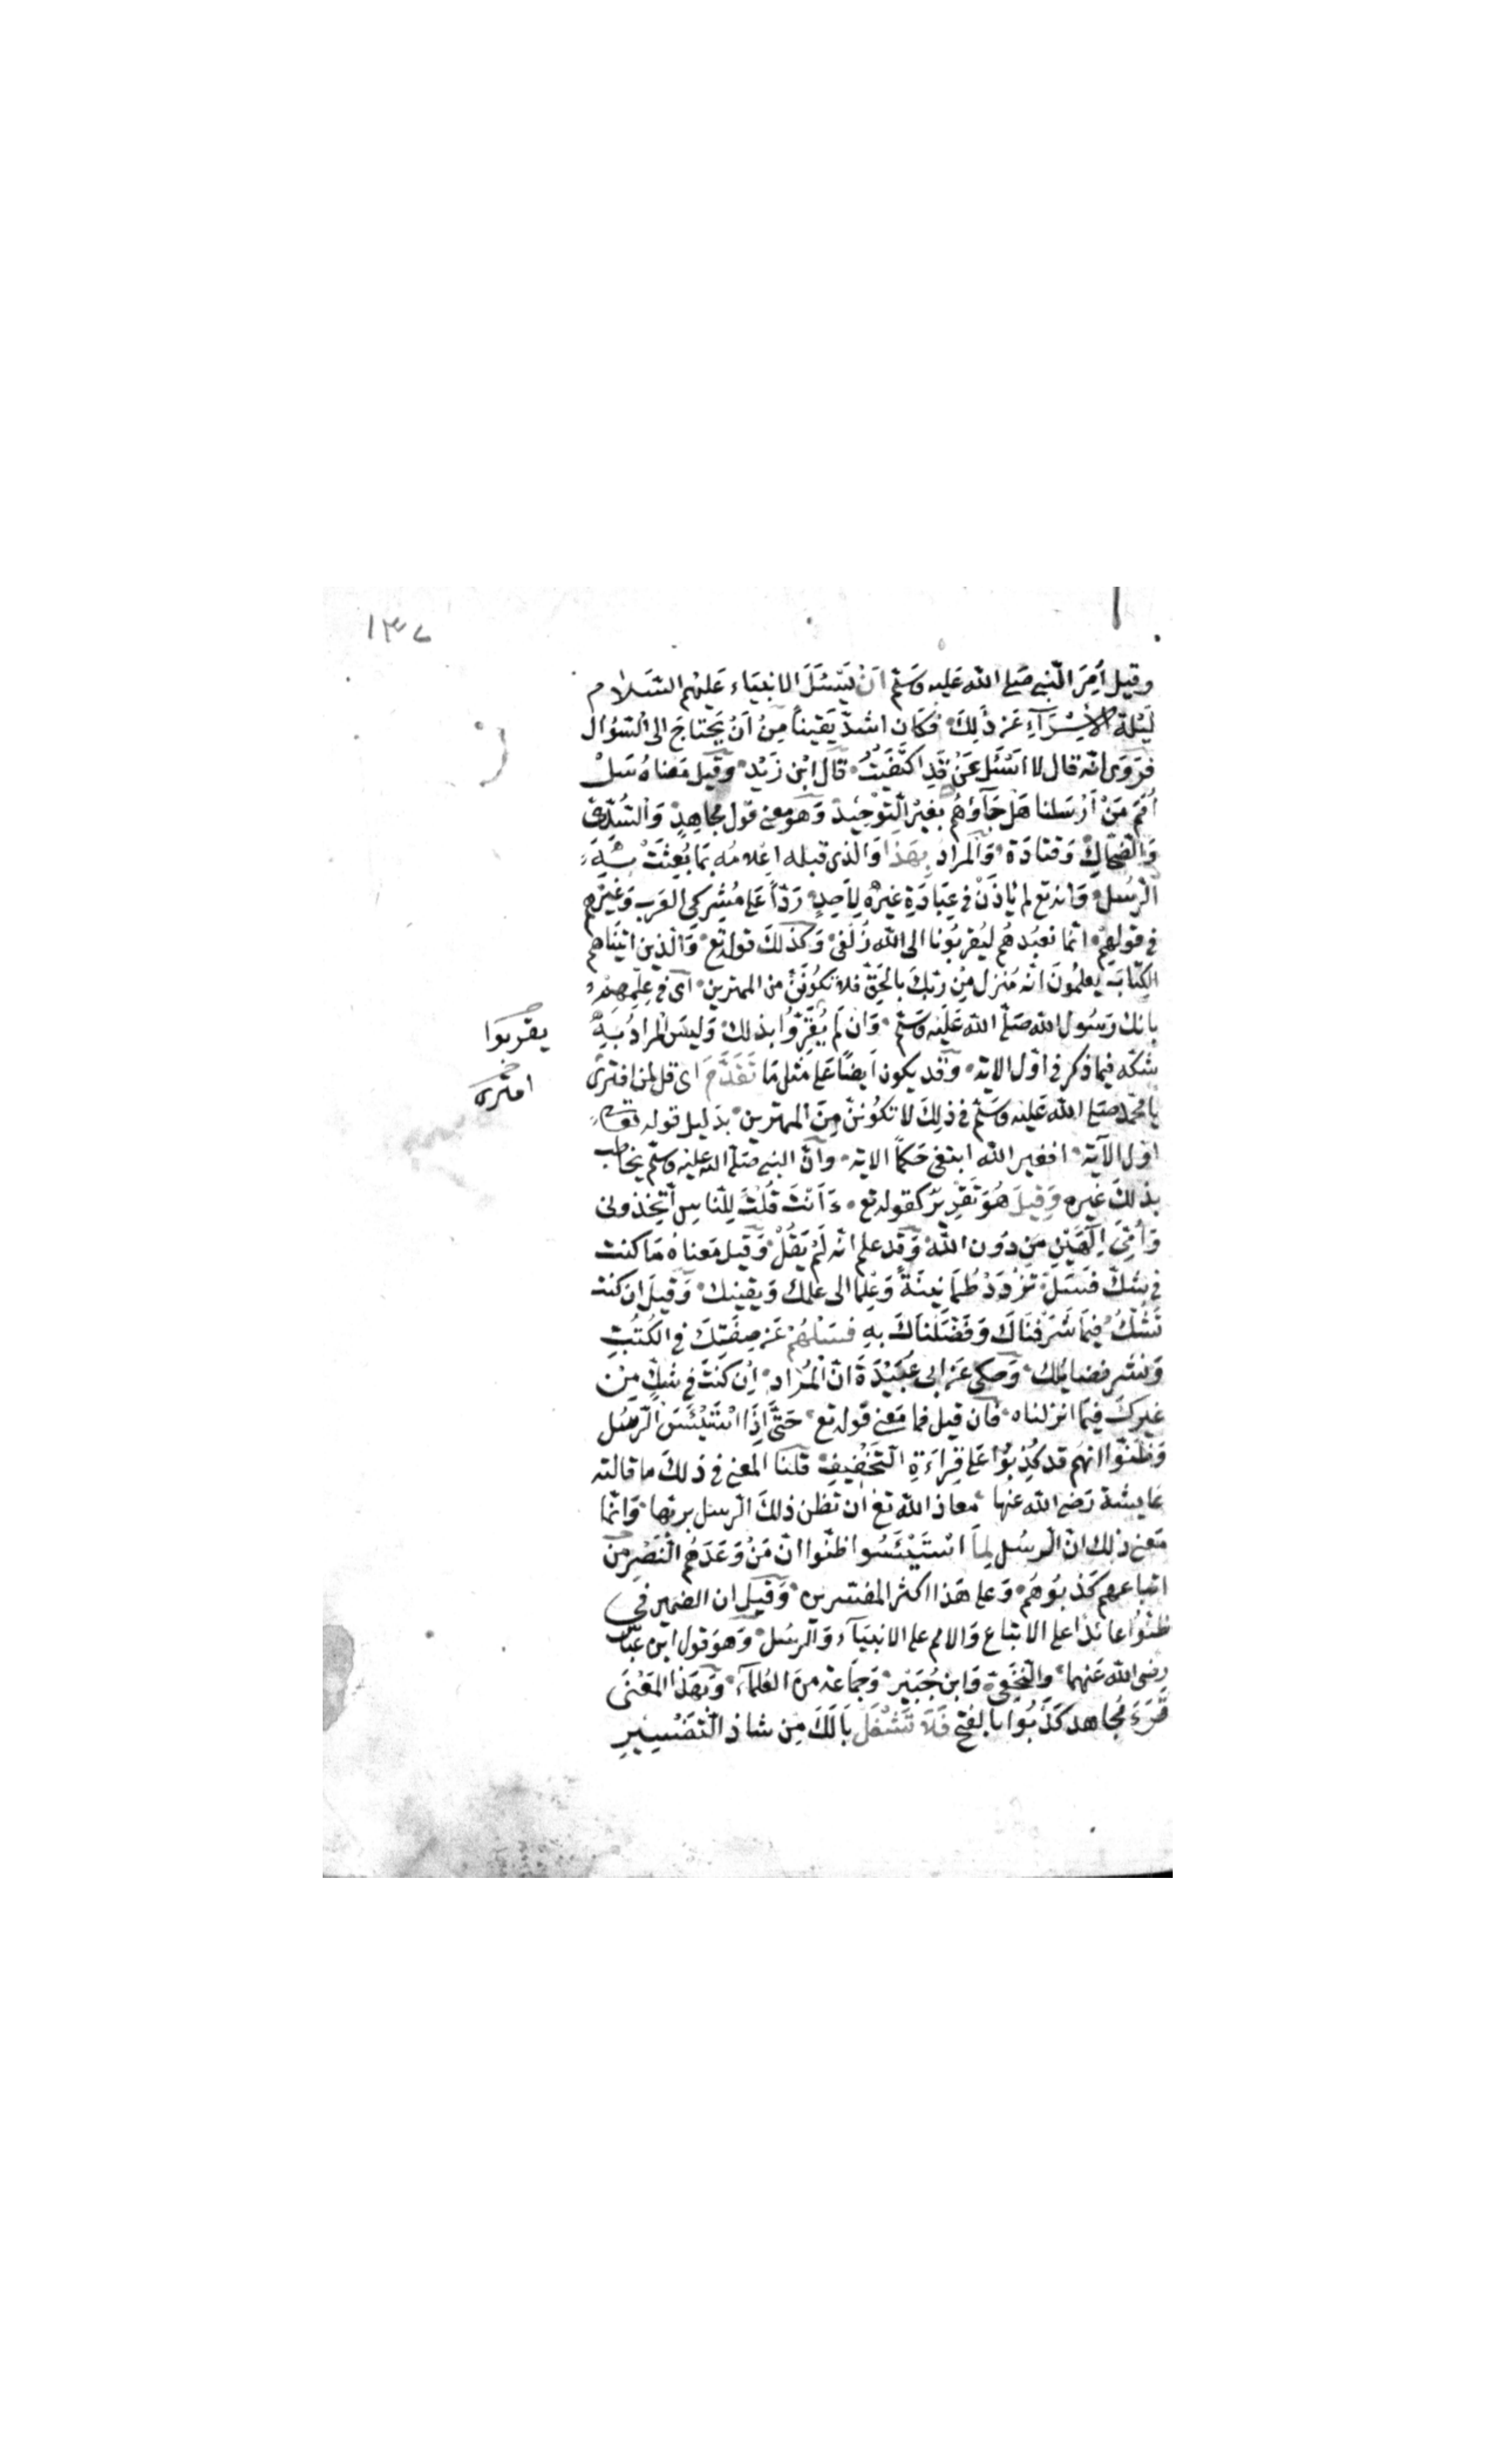 ١٣٧
وقيل أُمِرَ النّبي صَلى الله عَليه وسَلم اَنْ يَسْئَلَ الانبيَاء عَليْهم السَّلام
لَيْلة الْاِسْرَآءِ عَن ذٰلِكَ فكَان اشدّ يَقينًا مِنْ اَنْ يَحتاجَ الى السّؤال
فرَوَى انّه قال لا اسْئَل عَنْ قَدِ اكتَفَيْتُ قَال ابْن زَيْد وَقيل مَعناهُ سَلْ
اُمَمَ مَنْ اَرْسَلنا هَل جَآؤهُم بغيْر التّوْحيد وَهو معنى قول مجاهدٍ وَالسُّدّى
وَالضّحّاك وَقتادَة وَالمراد بهَذا وَالذى قبله اِعْلامُه بمَا بُعِثَتْ بِهِ
الرّسُل وَانه تع لم يَاذَنْ في عِبَادَةِ غَيْره لِاَحدٍ رَدّاً عَلى مُشركى العَرب وَغيْرهم
في قولهمْ انّما نعبُدهُم ليُقربُونا الى الله زُلفى وَكذلكَ قوله تع وَالّذين اتينَاهم
الكتَابَ يعلمُونَ انّه مُنزل مِنْ ربّكَ بالحَقّ فلا تكُونَنّ من الممترين اى في عِلمِهمْ
بانك رَسُول الله صَلّى الله عَليْه وسَلم وَان لم يُقِرّوا بذلك وَليسَ المرادُ بِهِ
شكّه فيما ذكر في اوّل الاية وَقد يكون اَيضًا عَلى مثل مَا تقَدَّمَ اى قل لمن افترى
يا محمّد صَلى الله عَليْه وسَلم في ذلِكَ لا تكُوننّ مِنَ الممترين بدَليل قوله تعالى
اوّل الآية افغير الله ابتغى حَكمًا الاية وَانّ النبي صَلّى الله عليْه وسَلم يخاطب
بذلكَ غيره وَقيلَ هُوَ تقرير كقوله تع ءَاَنْتَ قُلْتَ للنّاسِ اتّخذونى
وَاُمّىَ اِلٰهَيْن مِن دُون الله وَقد علم انّه لَمْ يَقُلْ وَقيل مَعناهُ مَا كنت
في شكّ فسَلْ تزْدَدْ طُمَانينَةً وَعِلمًا الى علمك وَيقينك وَقيلَ ان كنت
تَشُكّ فيمَا شَرّفنَاكَ وَفَضّلناكَ بهِ فسَلْهُمْ عَن صِفَتِكَ في الكُتُبِ
وَنشر فضايلك وَحكى عَن ابى عُبَيْدَةَ انّ المُراد اِن كنتَ في شكّ مِنْ
غيركَ فيمَا انزلناه فان قيل فما مَعنى قوله تع حَتّى اِذَا اسْتَيْئَسَ الرّسُل
وَظنّوا انهم قد كُذِبُوا عَلى قراءَةِ التّخْفيفِ قلنا المعنى في ذلكَ ما قالته
عايشة رَضى الله عنها معاذ الله تع ان تظن ذلكَ الرّسل بربّها وَانّما
مَعنى ذلك انّ الرسُل لمّا اسْتيْئَسُوا ظنّوا انّ مَنْ وَعَدَهُم النّصْر من
اتباعهم كذبُوهُم وَعلى هَذا اكثر المفسّرين وَقيل ان الضمير في
ظنّوا عائدا على الاتباع وَالامم على الانبيآء وَالرسُل وَهوَ قول ابن عبّاس
رضى الله عَنهما والنّخعىّ وَابن جُبَيْر وَجماعة منَ العُلمآء وَبهَذا المَعْنَى
قَرَءَ مُجاهد كَذَبُوا بالفتح فَلَا تَشْغَل بَالَكَ مِن شاذ التّفسيرِ
يقربوا
افترى